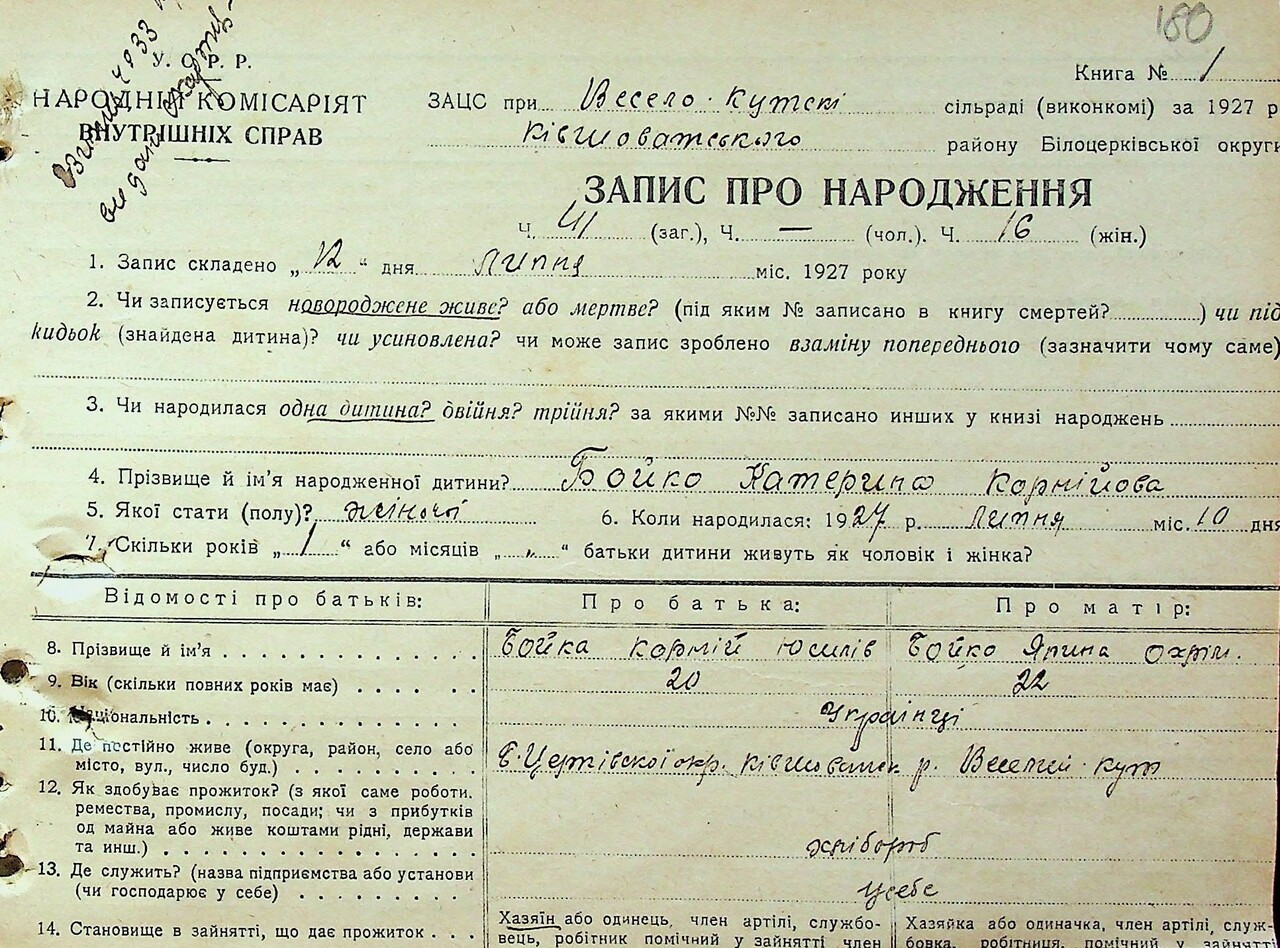 180
У. С. Р. Р.
НАРОДНІЙ КОМІСАРІЯТ
ВНУТРІШНІХ СПРАВ
Книга № 1
ЗАЦС при Весело-Кутскі сільраді (виконкомі) за 1927 р
Ківшоватського району Білоцерківської округи
ЗАПИС ПРО НАРОДЖЕННЯ
Ч. 41 (заг.), Ч. — (чол.). Ч. 16 (жін.)
1. Запис складено „ 12 “ дня Липня міс. 1927 року
2. Чи записується новороджене живе? або мертве? (під яким № записано в книгу смертей? ) чи під
кидьок (знайдена дитина)? чи усиновлена? чи може запис зроблено взаміну попереднього (зазначити чому саме)
3. Чи народилася одна дитина? двійня? трійня? за якими №№ записано инших у книзі народжень
4. Прізвище й ім'я народженної дитини? Бойко Катерина Корнійова
5. Якої стати (полу)? жіночі 6. Коли народилася: 1927 р. липня міс. 10 дня
7. Скільки років „ 1 “ або місяців „ „ “ батьки дитини живуть як чоловік і жінка?
Відомості про батьків: Про батька: Про матір:
8. Прізвище й ім'я Бойка Корній Юхилів Бойко Ярина Охрім.
9. Вік (скільки повних років має) 20 22
10. Національність Українці
11. Де постійно живе (округа, район, село або
місто, вул., число буд.) Б. Церківскої окр. Ківшоватск р. Веселий-Кут
12. Як здобуває прожиток? (з якої саме роботи.
ремества, промислу, посади; чи з прибутків
од майна або живе коштами рідні, держави
та инш.) хлібороб
13. Де служить? (назва підприємства або установи
(чи господарює у себе) у себе
14. Становище в зайнятті, що дає прожиток
Хазяїн або одинець, член артілі, службо-
вець, робітник помічний у зайнятті член
Хазяйка або одиначка, член артілі, служ-
бовка, робітниця, помічний у зайнятті